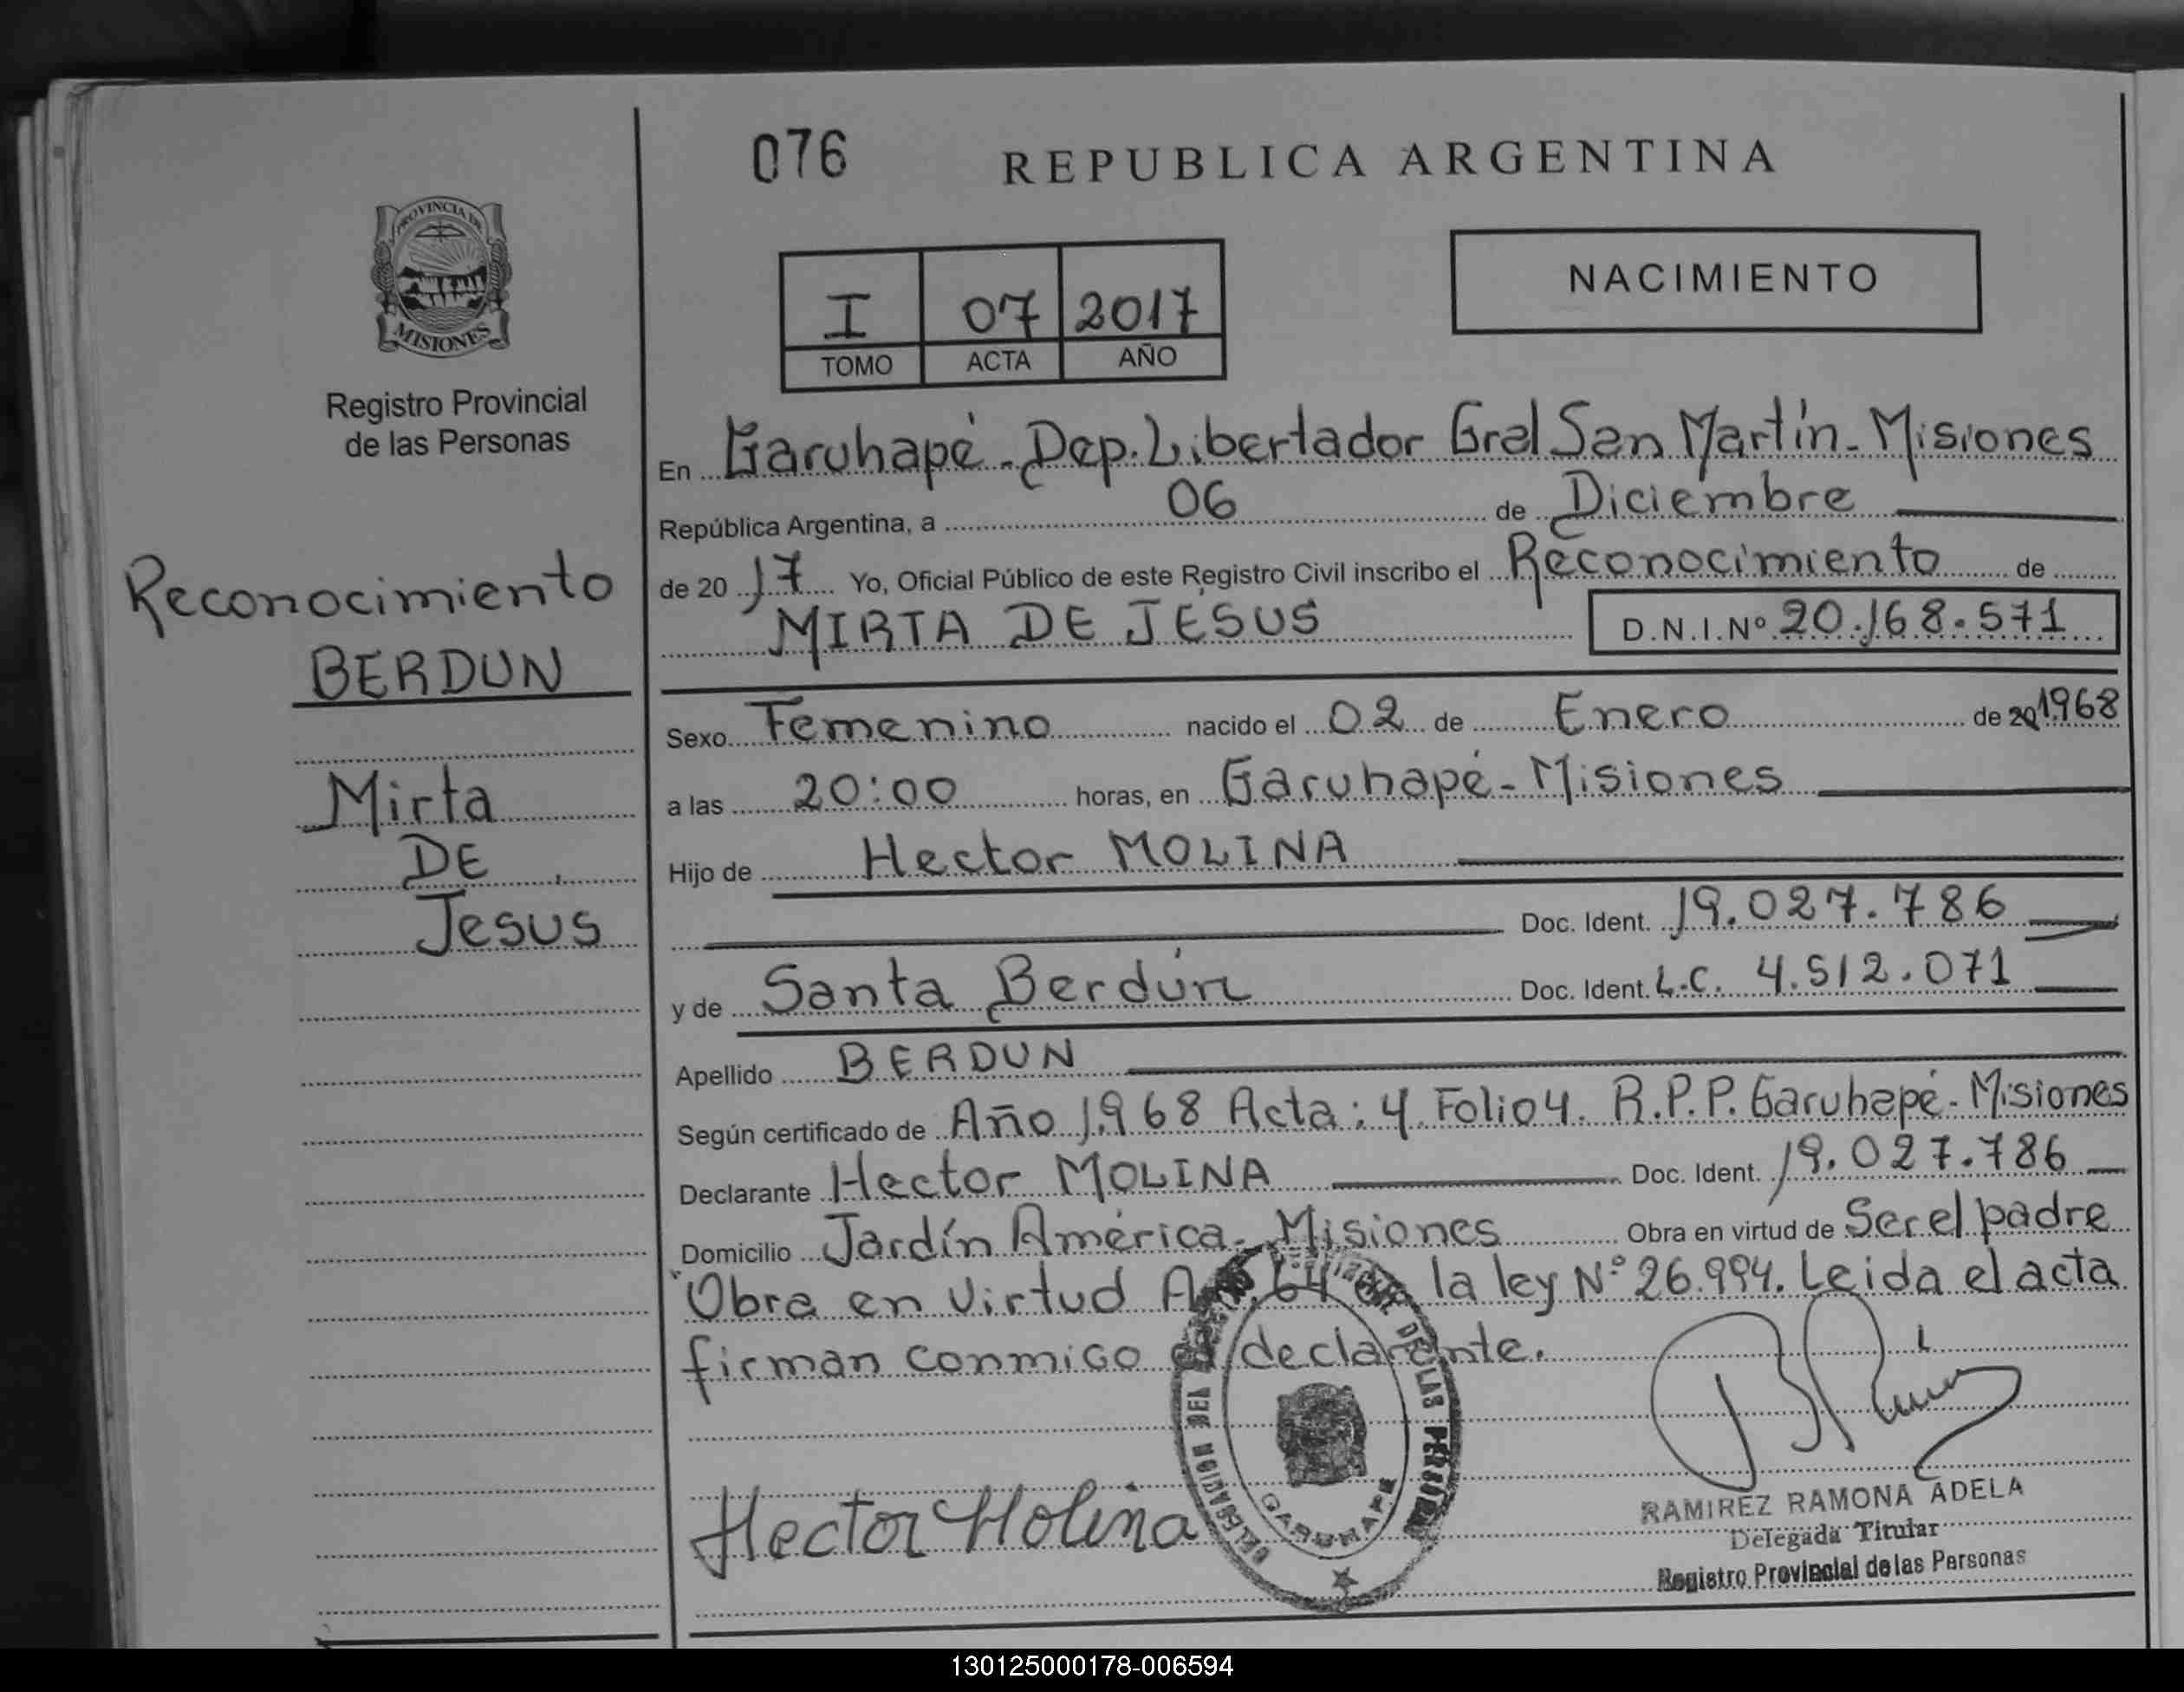 076
REPUBLICA ARGENTINA
PROVINCIA DE
MISIONES
Registro Provincial
de las Personas
NACIMIENTO
I 07 2017
TOMO ACTA AÑO
En Garuhapé - Dep. Libertador Gral San Martín - Misiones
República Argentina, a 06 de Diciembre
de 2017 Yo, Oficial Público de este Registro Civil inscribo el Reconocimiento de
MIRTA DE JESUS D.N.I.Nº 20.168.571
Reconocimiento
BERDUN
Mirta
DE
Jesus
Sexo Femenino nacido el 02 de Enero de 20 1968
a las 20:00 horas, en Garuhapé - Misiones
Hijo de Hector MOLINA
Doc. Ident. 19.027.786
y de Santa Berdún Doc. Ident. L.C. 4.512.071
Apellido BERDUN
Según certificado de Año 1968 Acta: 4 Folio 4. R.P.P. Garuhapé - Misiones
Declarante Hector MOLINA Doc. Ident. 19.027.786
Domicilio Jardín América - Misiones Obra en virtud de Ser el padre
Obra en Virtud la ley Nº 26.994. Leida el acta
firman conmigo declarante.
Hector Molina
DELEGACION DEL DE LAS PERSONAS
GARUHAPE
RAMIREZ RAMONA ADELA
Delegada Titular
Registro Provincial de las Personas
130125000178-006594